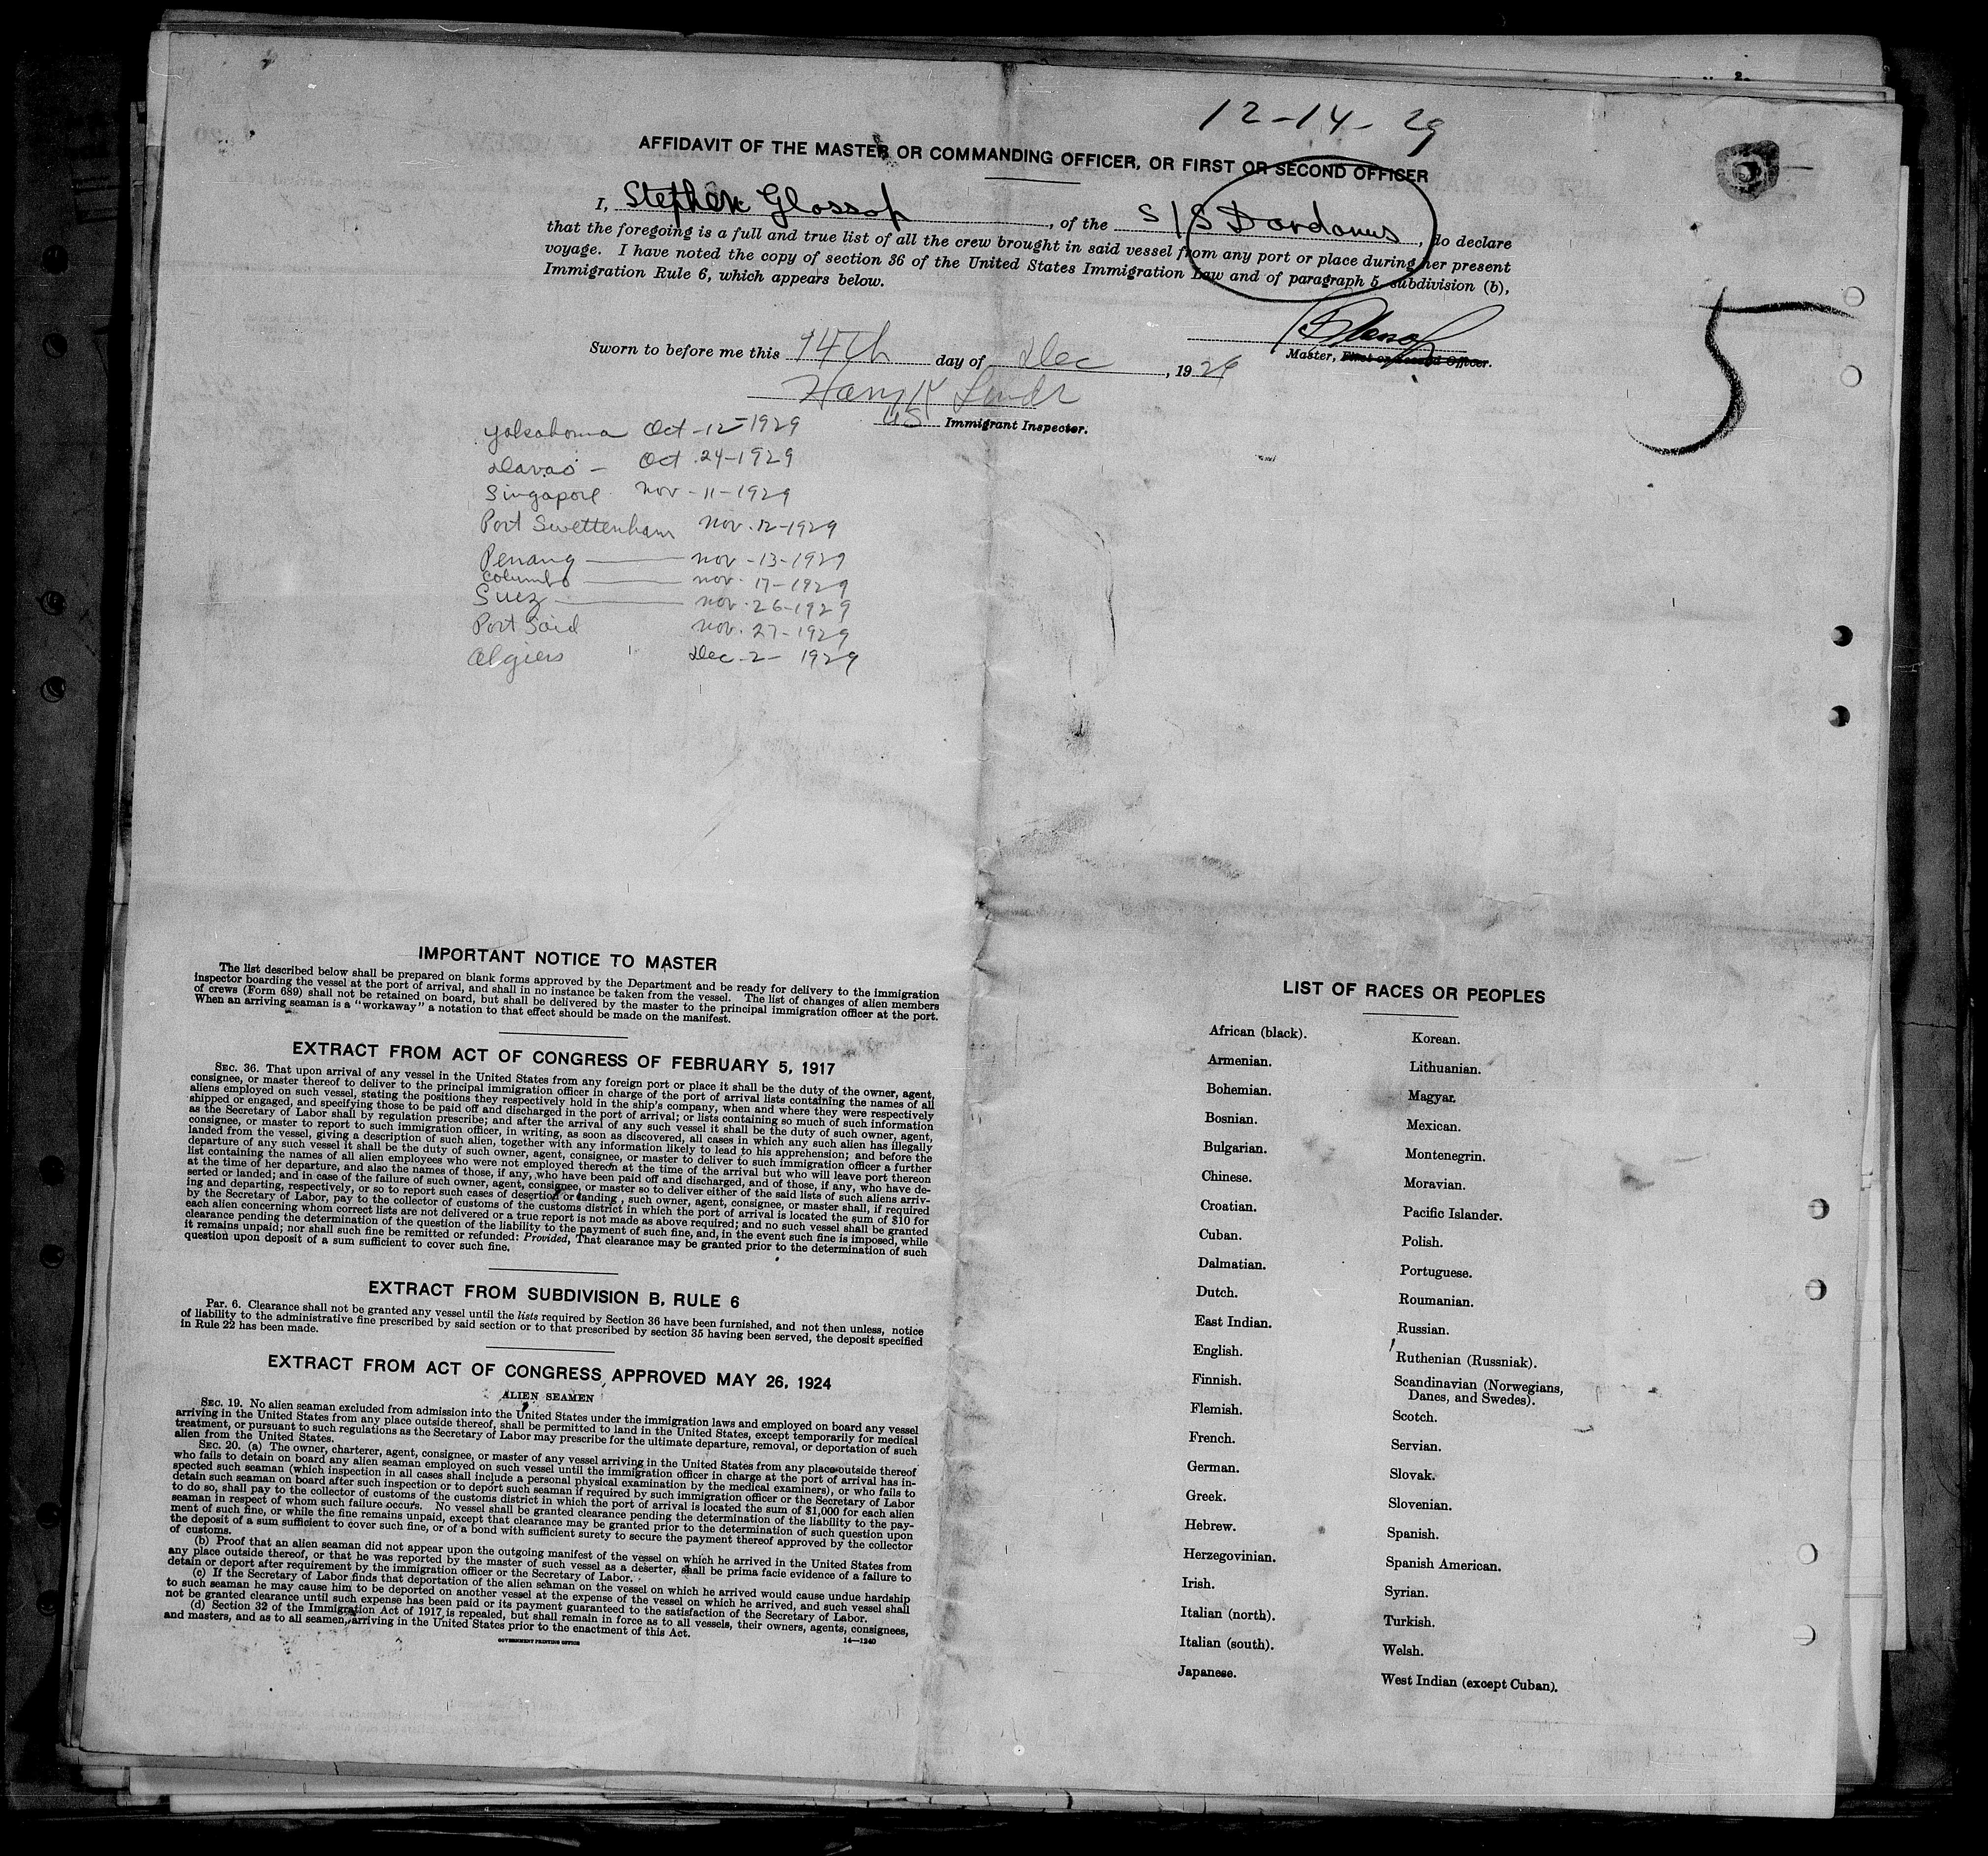 12-14-29
AFFIDAVIT OF THE MASTER OR COMMANDING OFFICER, OR FIRST OR SECOND OFFICER
I, Stephen Glossop, of the S/S Dardanus, do declare
that the foregoing is a full and true list of all the crew brought in said vessel from any port or place during her present
voyage. I have noted the copy of section 36 of the United States Immigration Law and of paragraph 5 subdivision (b),
Immigration Rule 6, which appears below.
5
Sworn to before me this 14th day of Dec, 1929
Master, First or Second Officer.
Harry K
US Immigrant Inspector.
Yokohoma Oct-12-1929
Davao - Oct 24-1929
Singapore Nov-11-1929
Port Swettenham Nov. 12-1929
Penang Nov-13-1929
Columbo Nov. 17-1929
Suez Nov. 26-1929
Port Said Nov. 27-1929
Algiers Dec-2-1929
IMPORTANT NOTICE TO MASTER
The list described below shall be prepared on blank forms approved by the Department and be ready for delivery to the immigration
inspector boarding the vessel at the port of arrival, and shall in no instance be taken from the vessel. The list of changes of alien members
of crews (Form 689) shall not be retained on board, but shall be delivered by the master to the principal immigration officer at the port.
When an arriving seaman is a "workaway" a notation to that effect should be made on the manifest.
EXTRACT FROM ACT OF CONGRESS OF FEBRUARY 5, 1917
SEC. 36. That upon arrival of any vessel in the United States from any foreign port or place it shall be the duty of the owner, agent,
consignee, or master thereof to deliver to the principal immigration officer in charge of the port of arrival lists containing the names of all
aliens employed on such vessel, stating the positions they respectively hold in the ship's company, when and where they were respectively
shipped or engaged, and specifying those to be paid off and discharged in the port of arrival; or lists containing so much of such information
as the Secretary of Labor shall by regulation prescribe; and after the arrival of any such vessel it shall be the duty of such owner, agent,
consignee, or master to report to such immigration officer, in writing, as soon as discovered, all cases in which any such alien has illegally
landed from the vessel, giving a description of such alien, together with any information likely to lead to his apprehension; and before the
departure of any such vessel it shall be the duty of such owner, agent, consignee, or master to deliver to such immigration officer a further
list containing the names of all alien employees who were not employed thereon at the time of the arrival but who will leave port thereon
at the time of her departure, and also the names of those, if any, who have been paid off and discharged, and of those, if any, who have de-
serted or landed; and in case of the failure of such owner, agent, consignee, or master so to deliver either of the said lists of such aliens arriv-
ing and departing, respectively, or so to report such cases of desertion or landing, such owner, agent, consignee, or master shall, if required
by the Secretary of Labor, pay to the collector of customs of the customs district in which the port of arrival is located the sum of $10 for
each alien concerning whom correct lists are not delivered or a true report is not made as above required; and no such vessel shall be granted
clearance pending the determination of the question of the liability to the payment of such fine, and, in the event such fine is imposed, while
it remains unpaid; nor shall such fine be remitted or refunded: Provided, That clearance may be granted prior to the determination of such
question upon deposit of a sum sufficient to cover such fine.
EXTRACT FROM SUBDIVISION B, RULE 6
Par. 6. Clearance shall not be granted any vessel until the lists required by Section 36 have been furnished, and not then unless, notice
of liability to the administrative fine prescribed by said section or to that prescribed by section 35 having been served, the deposit specified
in Rule 22 has been made.
EXTRACT FROM ACT OF CONGRESS APPROVED MAY 26, 1924
ALIEN SEAMEN
SEC. 19. No alien seaman excluded from admission into the United States under the immigration laws and employed on board any vessel
arriving in the United States from any place outside thereof, shall be permitted to land in the United States, except temporarily for medical
treatment, or pursuant to such regulations as the Secretary of Labor may prescribe for the ultimate departure, removal, or deportation of such
alien from the United States.
SEC. 20. (a) The owner, charterer, agent, consignee, or master of any vessel arriving in the United States from any place outside thereof
who fails to detain on board any alien seaman employed on such vessel until the immigration officer in charge at the port of arrival has in-
spected such seaman (which inspection in all cases shall include a personal physical examination by the medical examiners), or who fails to
detain such seaman on board after such inspection or to deport such seaman if required by such immigration officer or the Secretary of Labor
to do so, shall pay to the collector of customs of the customs district in which the port of arrival is located the sum of $1,000 for each alien
seaman in respect of whom such failure occurs. No vessel shall be granted clearance pending the determination of the liability to the pay-
ment of such fine, or while the fine remains unpaid, except that clearance may be granted prior to the determination of such question upon
the deposit of a sum sufficient to cover such fine, or of a bond with sufficient surety to secure the payment thereof approved by the collector
of customs.
(b) Proof that an alien seaman did not appear upon the outgoing manifest of the vessel on which he arrived in the United States from
any place outside thereof, or that he was reported by the master of such vessel as a deserter, shall be prima facie evidence of a failure to
detain or deport after requirement by the immigration officer or the Secretary of Labor.
(c) If the Secretary of Labor finds that deportation of the alien seaman on the vessel on which he arrived would cause undue hardship
to such seaman he may cause him to be deported on another vessel at the expense of the vessel on which he arrived, and such vessel shall
not be granted clearance until such expense has been paid or its payment guaranteed to the satisfaction of the Secretary of Labor.
(d) Section 32 of the Immigration Act of 1917 is repealed, but shall remain in force as to all vessels, their owners, agents, consignees,
and masters, and as to all seamen, arriving in the United States prior to the enactment of this Act.
GOVERNMENT PRINTING OFFICE 14-1240
LIST OF RACES OR PEOPLES
African (black).
Armenian.
Bohemian.
Bosnian.
Bulgarian.
Chinese.
Croatian.
Cuban.
Dalmatian.
Dutch.
East Indian.
English.
Finnish.
Flemish.
French.
German.
Greek.
Hebrew.
Herzegovinian.
Irish.
Italian (north).
Italian (south).
Japanese.
Korean.
Lithuanian.
Magyar.
Mexican.
Montenegrin.
Moravian.
Pacific Islander.
Polish.
Portuguese.
Roumanian.
Russian.
Ruthenian (Russniak).
Scandinavian (Norwegians,
Danes, and Swedes).
Scotch.
Servian.
Slovak.
Slovenian.
Spanish.
Spanish American.
Syrian.
Turkish.
Welsh.
West Indian (except Cuban).